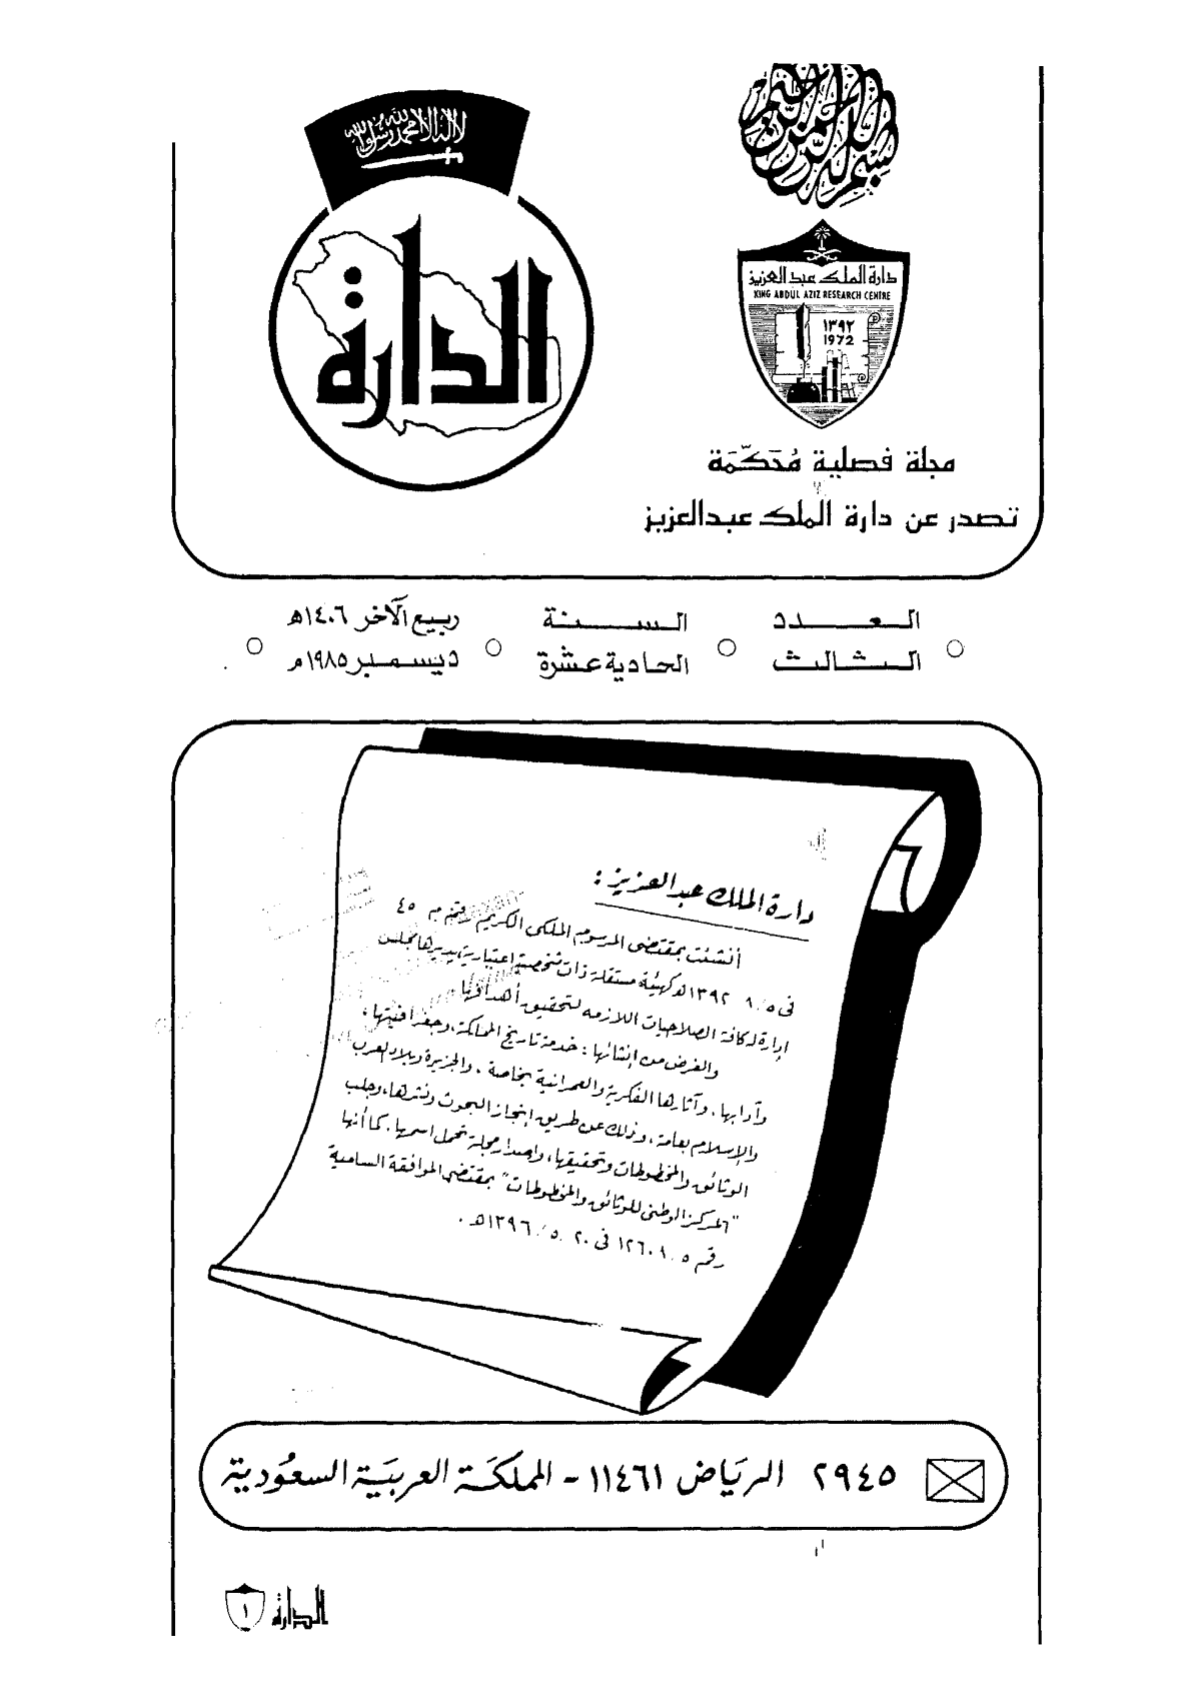 بسم الله الرحمن الرحيم
لا إله إلا الله محمد رسول الله
الدارة
دارة الملك عبد العزيز
KING ABDUL AZIZ RESEARCH CENTRE
١٣٩٢
1972
مجلة فصلية مُحَكّمَة
تصدر عن دارة الملك عبدالعزيز
العدد الثالث
السنة الحادية عشرة
ربيع الآخر ١٤٠٦هـ
ديسمبر ١٩٨٥م
دارة الملك عبد العزيز :
أنشئت بمقتضى المرسوم الملكي الكريم رقم م ٤٥
في ٥ / ٨ ١٣٩٢هـ كهيئة مستقلة ذات شخصية إعتبارية يديرها مجلس
إدارة له كافة الصلاحيات اللازمه لتحقيق أهدافها
والغرض من إنشائها : خدمة تاريخ المملكة، وجغرافيتها،
وآدابها، وآثارها الفكرية والعمرانية بخاصة، والجزيرة وبلاد العرب
والإسلام بعامة، وذلك عن طريق إنجاز البحوث ونشرها، وجلب
الوثائق والمخطوطات وتحقيقها، واصدار مجلة تحمل اسمها، كما أنها
"المركز الوطني للوثائق والمخطوطات" بمقتضى الموافقة السامية
رقم ٥ / ١٢٦٠٨ في ٢٠ / ٥ / ١٣٩٦هـ .
٢٩٤٥ الرياض ١١٤٦١ - المملكة العربية السعودية
الدارة ١